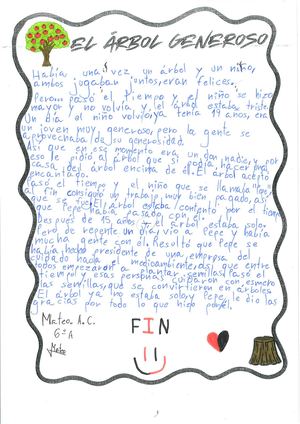 EL ÁRBOL GENEROSO
Había una vez, un árbol y un niño,
ambos jugaban juntos, eran felices.
Pero pasó el tiempo y el niño se hizo
mayor y no volvía, y el árbol estaba triste.
Un día el niño volvió, ya tenía 19 años, era
un joven muy generoso, pero la gente se
aprovechaba de su generosidad.
Así que en ese momento era un don nadie, y por
eso le pidió al árbol que si podía hacer una
casa del árbol encima de él. El árbol aceptó
encantado.
Pasó el tiempo y el niño que se llamaba
consiguió un trabajo muy bien pagado, así
que se fue. El árbol estaba contento por el tiempo
que Pepe había pasado con él.
Después de 15 años, el árbol estaba solo.
Pero de repente un día vio a Pepe y había
mucha gente con él. Resultó que Pepe se
había hecho presidente de una empresa del
cuidado hacia el medioambiente, así que entre
todos empezaron a plantar semillas. Pasó el
tiempo y esas personas cuidaron con esmero
las semillas, que se convirtieron en árboles
El árbol ya no estaba solo y Pepe le dio las
gracias por todo lo que hizo por él.
Mateo A.C.
6º A
FIN